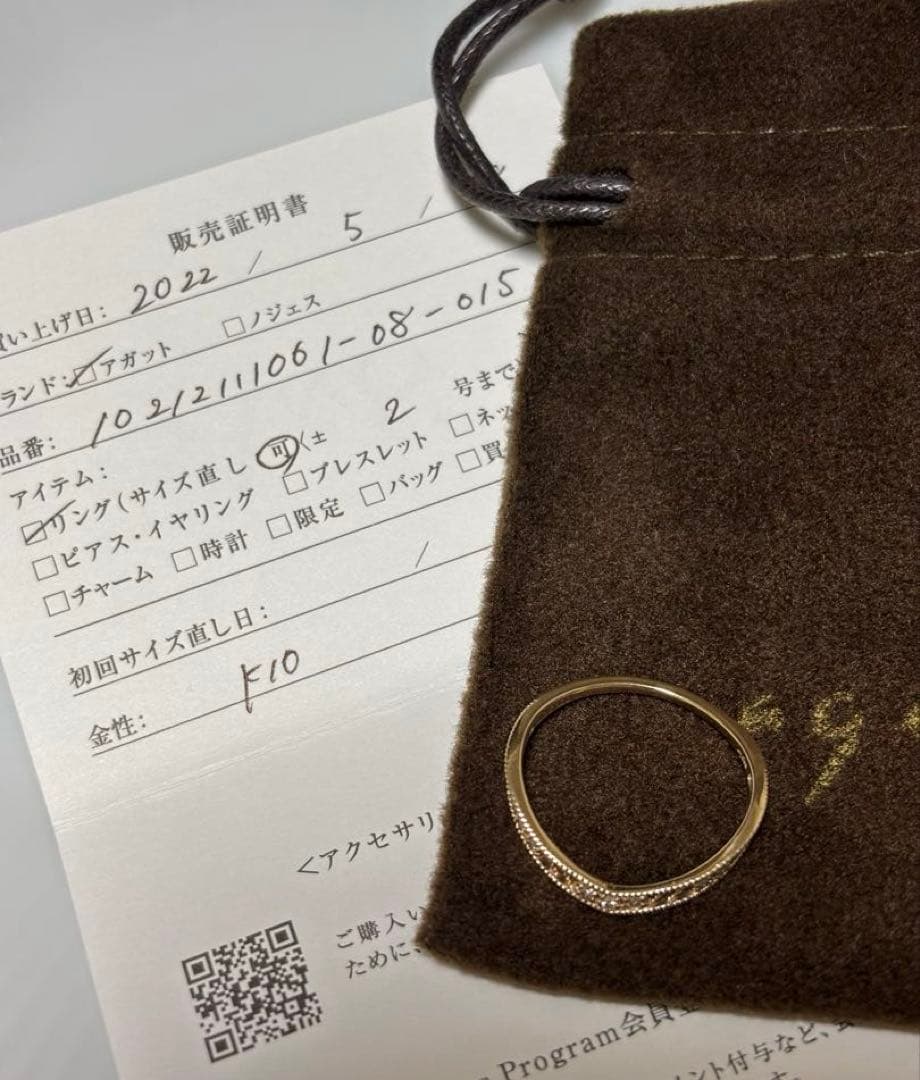 販売証明書
買い上げ日: 2022 / 5 /
ランド: ☑アガット □ノジェス
品番: 10212111061-08-015
アイテム:
☑リング(サイズ直し 可 (± 2 号まで
□ピアス・イヤリング □ブレスレット □ネッ
□チャーム □時計 □限定 □バッグ □買
初回サイズ直し日: /
金性: K10
<アクセサリ
ご購入い
ために、
Program会員
ント付与など、
ag